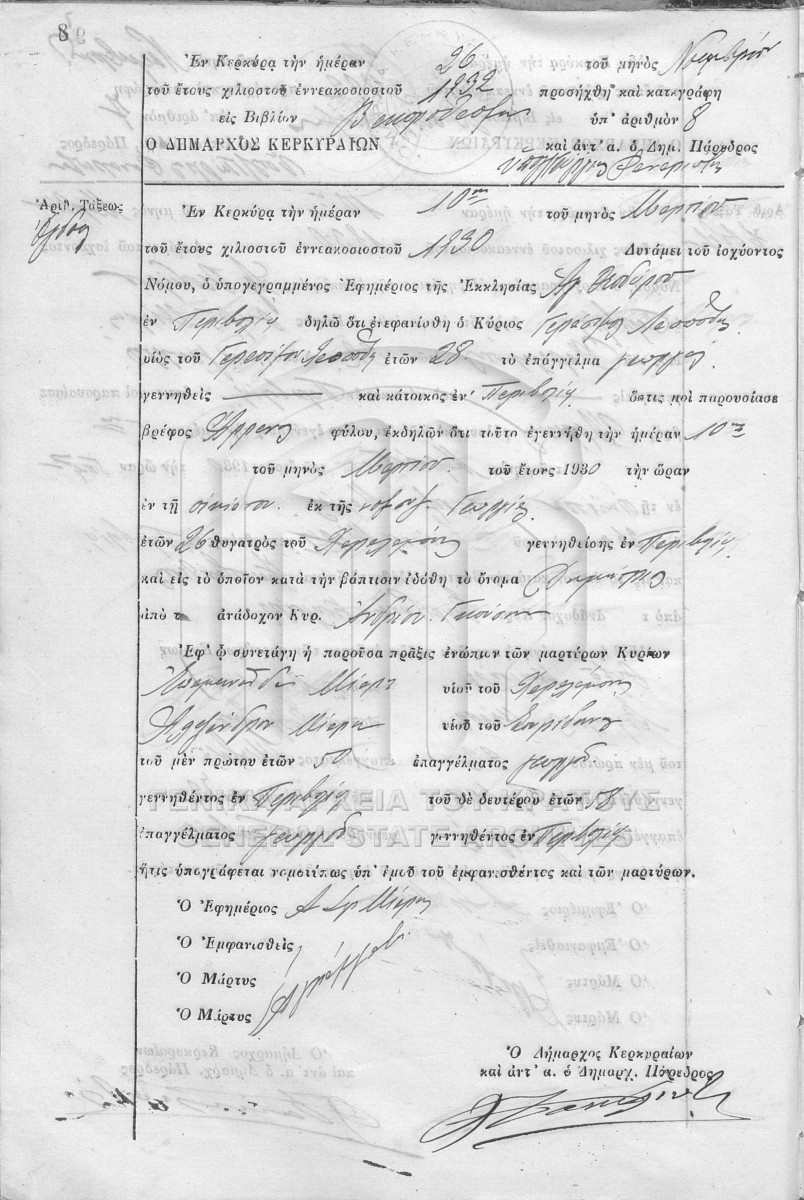 8
Ἐν Κερκύρᾳ τὴν ἡμέραν 26 τοῦ μηνὸς Νοεμβρίου
τοῦ ἔτους χιλιοστοῦ ἐννεακοσιοστοῦ 1932 προσήχθη καὶ κατεγράφη
εἰς Βιβλίον ὑπ' ἀριθμὸν 8
Ὁ ΔΗΜΑΡΧΟΣ ΚΕΡΚΥΡΑΙΩΝ καὶ ἀντ' α. ὁ Δημ. Πάρεδρος
Ἀριθ. Τάξεως Ἐν Κερκύρᾳ τὴν ἡμέραν 10ην τοῦ μηνὸς Μαρτίου
τοῦ ἔτους χιλιοστοῦ ἐννεακοσιοστοῦ 1930 Δυνάμει τοῦ ἰσχύοντος
Νόμου, ὁ ὑπογεγραμμένος Ἐφημέριος τῆς Ἐκκλησίας Ἁγ.
ἐν Περιβολίῳ δηλῶ ὅτι ἐνεφανίσθη ὁ Κύριος Γεράσιμος
υἱὸς τοῦ Γερασίμου ἐτῶν 28 τὸ ἐπάγγελμα γεωργὸς
γεννηθεὶς καὶ κάτοικος ἐν Περιβολίῳ ὅστις μοὶ παρουσίασε
βρέφος Ἄρρεν φύλου, ἐκδηλῶν ὅτι τοῦτο ἐγεννήθη τὴν ἡμέραν 10ην
τοῦ μηνὸς Μαρτίου τοῦ ἔτους 1930 τὴν ὥραν
ἐν τῇ οἰκίᾳ του ἐκ τῆς Γεωργίας
ἐτῶν 26 θυγατρὸς τοῦ Χαραλάμπη γεννηθείσης ἐν Περιβολίῳ
καὶ εἰς τὸ ὁποῖον κατὰ τὴν βάπτισιν ἐδόθη τὸ ὄνομα Δημήτριος
ἀπὸ τ ἀνάδοχον Κυρ. Ἀνδρέου
Ἐφ' ᾧ συνετάγη ἡ παροῦσα πρᾶξις ἐνώπιον τῶν μαρτύρων Κυρίων
Ἐπαμεινώνδα Μιαρη υἱοῦ τοῦ Χαραλάμπη
Ἀλεξάνδρου Μιαρη υἱοῦ τοῦ Σπυρίδωνος
τοῦ μὲν πρώτου ἐτῶν 50 ἐπαγγέλματος γεωργοῦ
γεννηθέντος ἐν Περιβολίῳ τοῦ δὲ δευτέρου ἐτῶν
ΓΕΝΙΚΑ ΑΡΧΕΙΑ ΤΟΥ ΚΡΑΤΟΥΣ
ἐπαγγέλματος γεωργοῦ γεννηθέντος ἐν Περιβολίῳ
GENERAL STATE ARCHIVES
ἥτις ὑπογράφεται νομοτύπως ὑπ' ἐμοῦ τοῦ ἐμφανισθέντος καὶ τῶν μαρτύρων.
Ὁ Ἐφημέριος
Ὁ Ἐμφανισθείς
Ὁ Μάρτυς
Ὁ Μάρτυς
Ὁ Δήμαρχος Κερκυραίων
καὶ ἀντ' α. ὁ Δημαρχ. Πάρεδρος